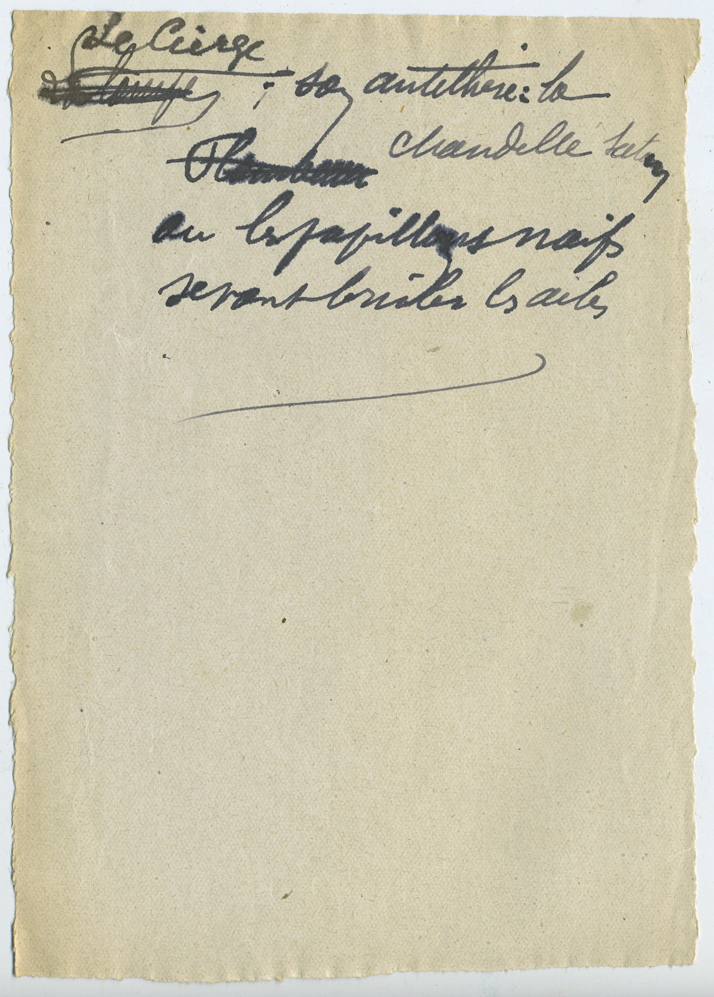 Le Cierge
: son antithèse : la
chandelle Satan
Flambeaux
ou les papillons naïfs
se vont brûler les ailes